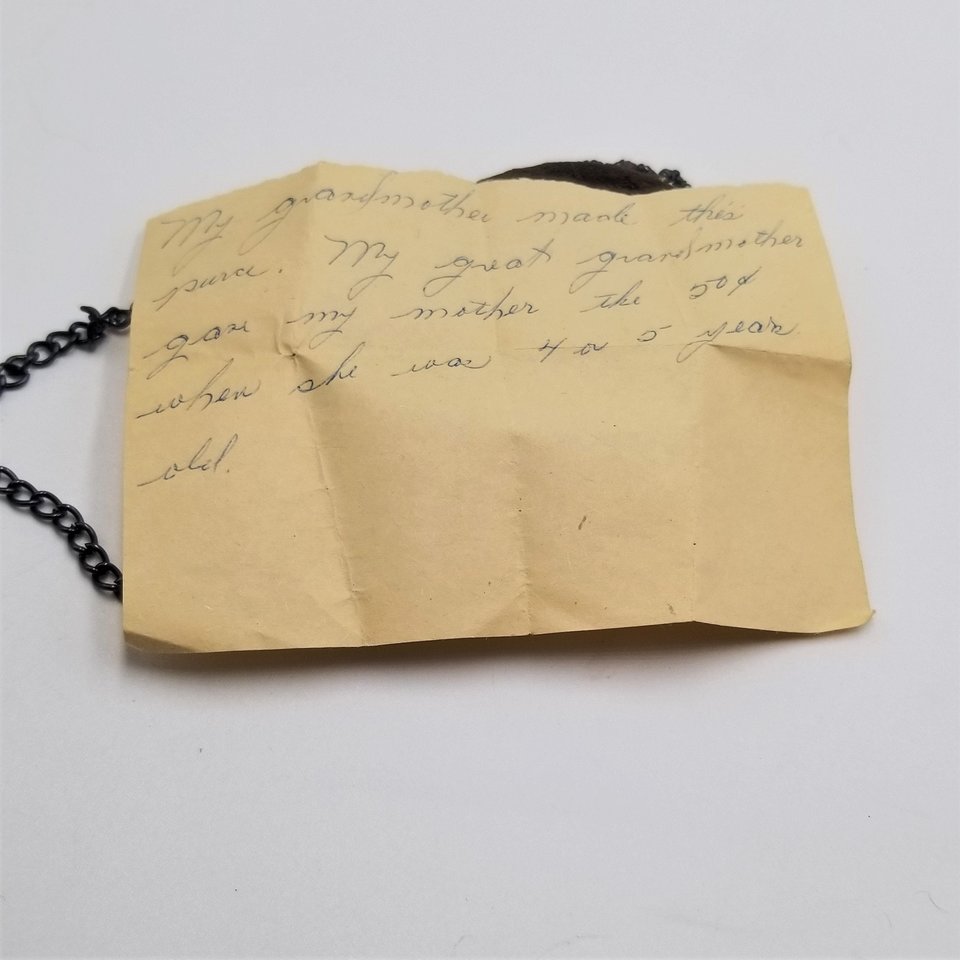 My grandmother made this
purse. My great grandmother
gave my mother the 50¢
when she was 4 or 5 years
old.